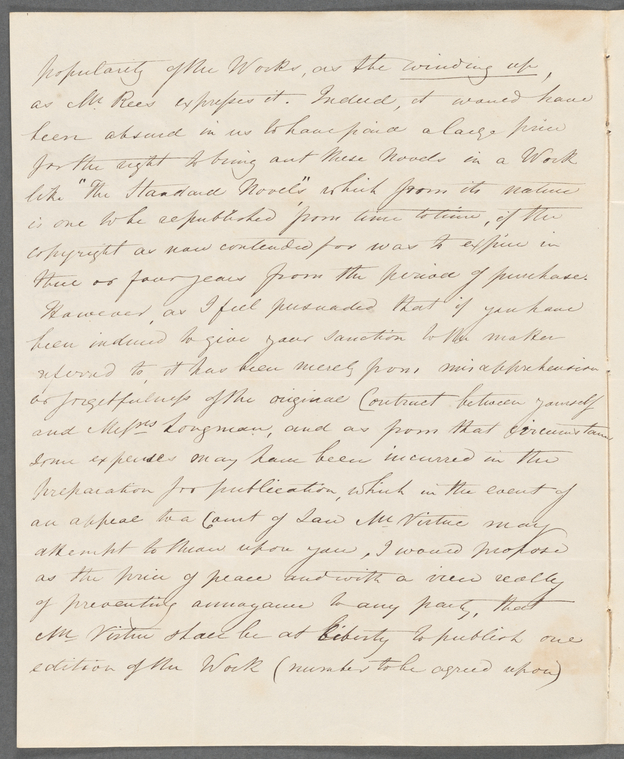 popularity of the Works, as the winding up,
as Mr. Rees expresses it. Indeed, it would have
been absurd in us to have paid a large price
for the right to bring out these Novels in a Work
like "The Standard Novels", which from its nature
is one to be republished from time to time, if the
copyright as now contended for was to expire in
three or four years from the period of purchase.
However, as I feel persuaded that if you have
been induced to give your sanction to the matter
referred to, it has been merely from misapprehension
or forgetfulness of the original Contract between yourself
and Messrs Longman, and as from that circumstance
some expenses may have been incurred in the
preparation for publication, which in the event of
an appeal to a Court of Law Mr Virtue may
attempt to throw upon you, I would propose
as the price of peace and with a view really
of preventing annoyance to any party, that
Mr Virtue shall be at liberty to publish one
edition of the Work (number to be agreed upon)